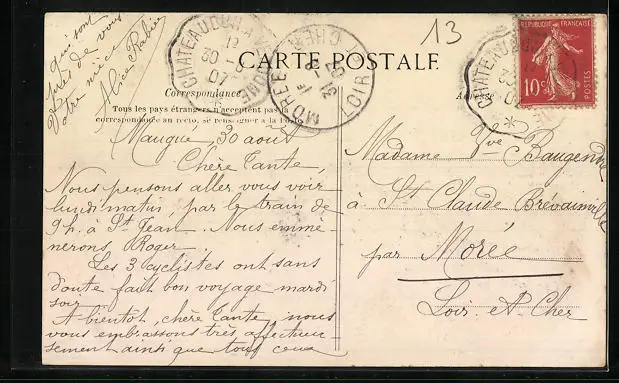 13
CARTE POSTALE
REPUBLIQUE FRANÇAISE
10c
POSTES
CHATEAUDUN A
30
07
MORÉE
LOIR-ET-CHER
Correspondance
Adresse
Tous les pays étrangers n'acceptent pas la
correspondance au recto, se renseigner à la Poste
Maugué, 30 août
Chère Tante,
Nous pensons aller vous voir
lundi matin, par le train de
9h. à St Jean. Nous emmè-
nerons Roger.
Les 3 cyclistes ont sans
doute fait bon voyage mardi
soir.
A bientôt, chère Tante, nous
vous embrassons très affectueu-
sement ainsi que tous ceux
qui sont
près de vous
Votre nièce
Alice Rabier
Madame Vve Baugendre
à St Claude Brévainville
par Morée
Loir et Cher